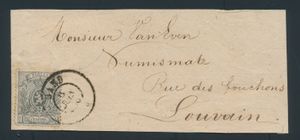 Monsieur Van Even
Numismate
Rue des Bouchons
Louvain
GAND